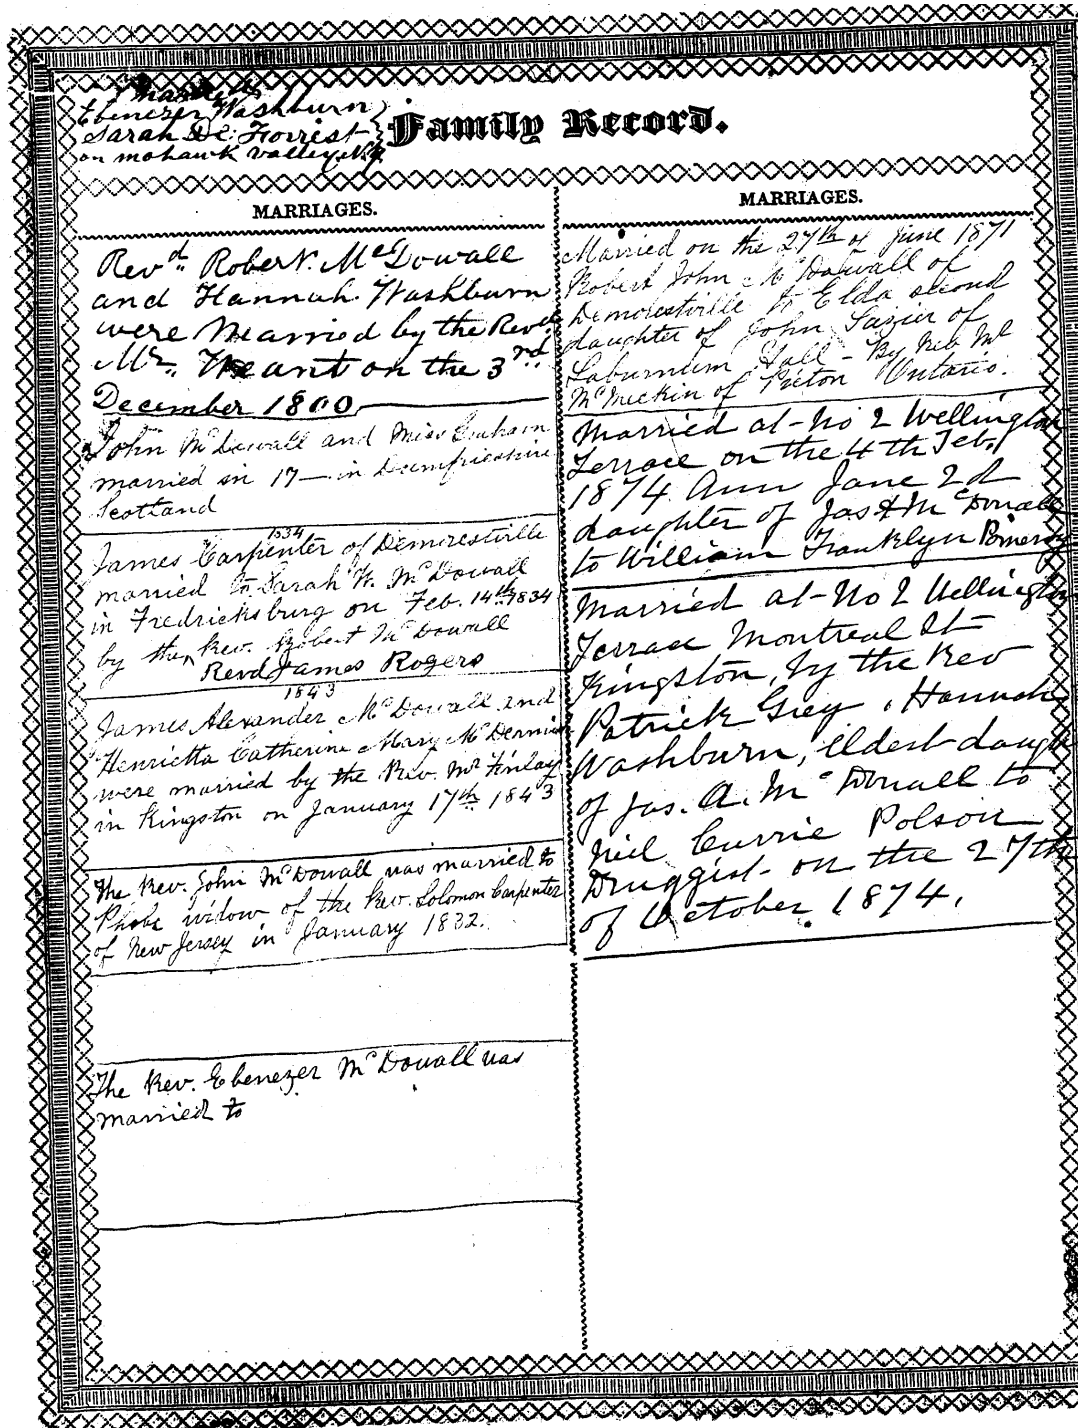 Married
Ebenezer Washburn
Sarah De Forrest
on mohawk valley N.Y.
Family Record.
MARRIAGES.
Revd. Robert. McDowall
and Hannah. Washburn
were Married by the Revd
Mr. on the 3rd
December 1800
John McDowall and Miss
married in 17— in Dumfriesshire
Scotland
1834
James Carpenter of Demorestville
married to Sarah W. McDowall
in Fredricksburg on Feb. 14th 1834
by the Rev. Robert McDowall
Revd James Rogers
1843
James Alexander McDowall and
Henrietta Catherine Mary
were married by the Rev. Mr Finlay
in Kingston on January 17th 1843
The Rev. John McDowall was married to
Phobe widow of the Rev. Solomon Carpenter
of New Jersey in January 1832.
The Rev. Ebenezer McDowall was
married to
MARRIAGES.
Married on the 27th of June 1871
Robert John McDowall of
Demorestville to Elda second
daughter of John of
Laburnum Hall - By Rev Mr
of Picton Ontario.
Married at No 2 Wellington
Terrace on the 4th Feb.
1874 Ann Jane 2d
daughter of Jas A McDowall
to William Franklyn
Married at No 2 Wellington
Terrace Montreal St
Kingston, by the Rev
Patrick Grey, Hannah
Washburn, eldest daugh
of Jas. A. McDowall to
Neil Currie Polson
Druggist on the 27th
of October 1874.